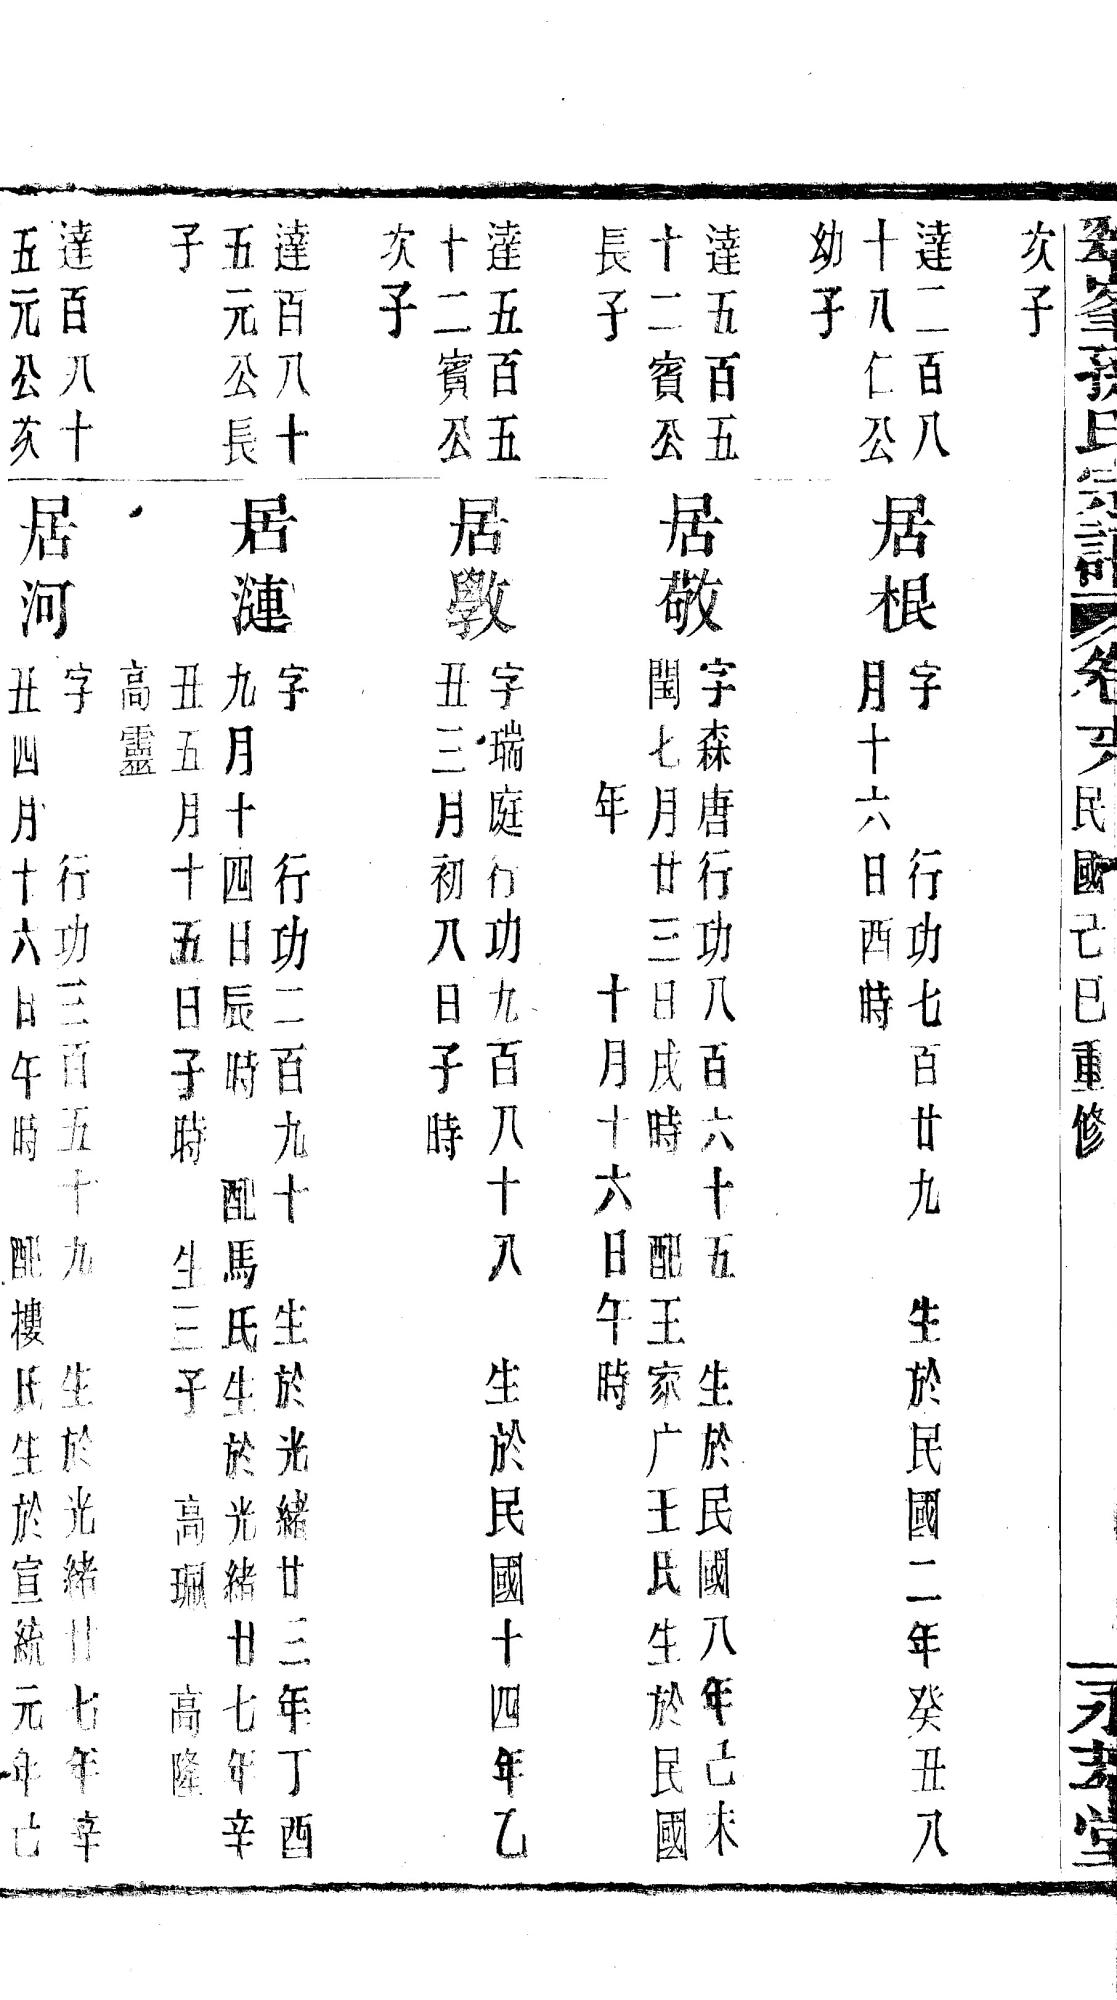 孫氏宗譜 卷 民國己巳重修 永孝堂
次子
達二百八
十八仁公
幼子
居根
字 行功七百廿九 生於民國二年癸丑八
月十六日酉時
達五百五
十二賓公
長子
居敬
字森唐行功八百六十五 生於民國八年己未
閏七月廿三日戌時 配王家广王氏生於民國
年 十月十六日午時
達五百五
十二賓公
次子
居斆
字瑞庭行功九百八十八 生於民國十四年乙
丑三月初八日子時
達百八十
五元公長
子
居漣
字 行功二百九十 生於光緒廿三年丁酉
九月十四日辰時 配馬氏生於光緒廿七年辛
丑五月十五日子時 生三子 高珮 高隆
高靈
達百八十
五元公次
居河
字 行功三百五十九 生於光緒廿七年辛
丑四月十六日午時 配樓氏生於宣統元年己